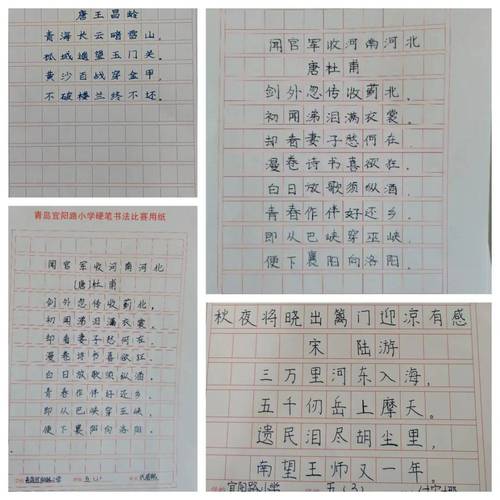 唐王昌龄
青海长云暗雪山。
孤城遥望玉门关。
黄沙百战穿金甲。
不破楼兰终不还。
闻官军收河南河北
唐杜甫
剑外忽传收蓟北，
初闻涕泪满衣裳。
却看妻子愁何在，
漫卷诗书喜欲狂。
白日放歌须纵酒，
青春作伴好还乡。
即从巴峡穿巫峡，
便下襄阳向洛阳。
青岛宜阳路小学硬笔书法比赛用纸
闻官军收河南河北
[唐]杜甫
剑外忽传收蓟北，
初闻涕泪满衣裳。
却看妻子愁何在，
漫卷诗书喜欲狂。
白日放歌须纵酒，
青春作伴好还乡。
即从巴峡穿巫峡，
便下襄阳向洛阳。
青岛宜阳路小学 五（2）
秋夜将晓出篱门迎凉有感
宋 陆游
三万里河东入海，
五千仞岳上摩天。
遗民泪尽胡尘里，
南望王师又一年
宜阳路小学 五（3）